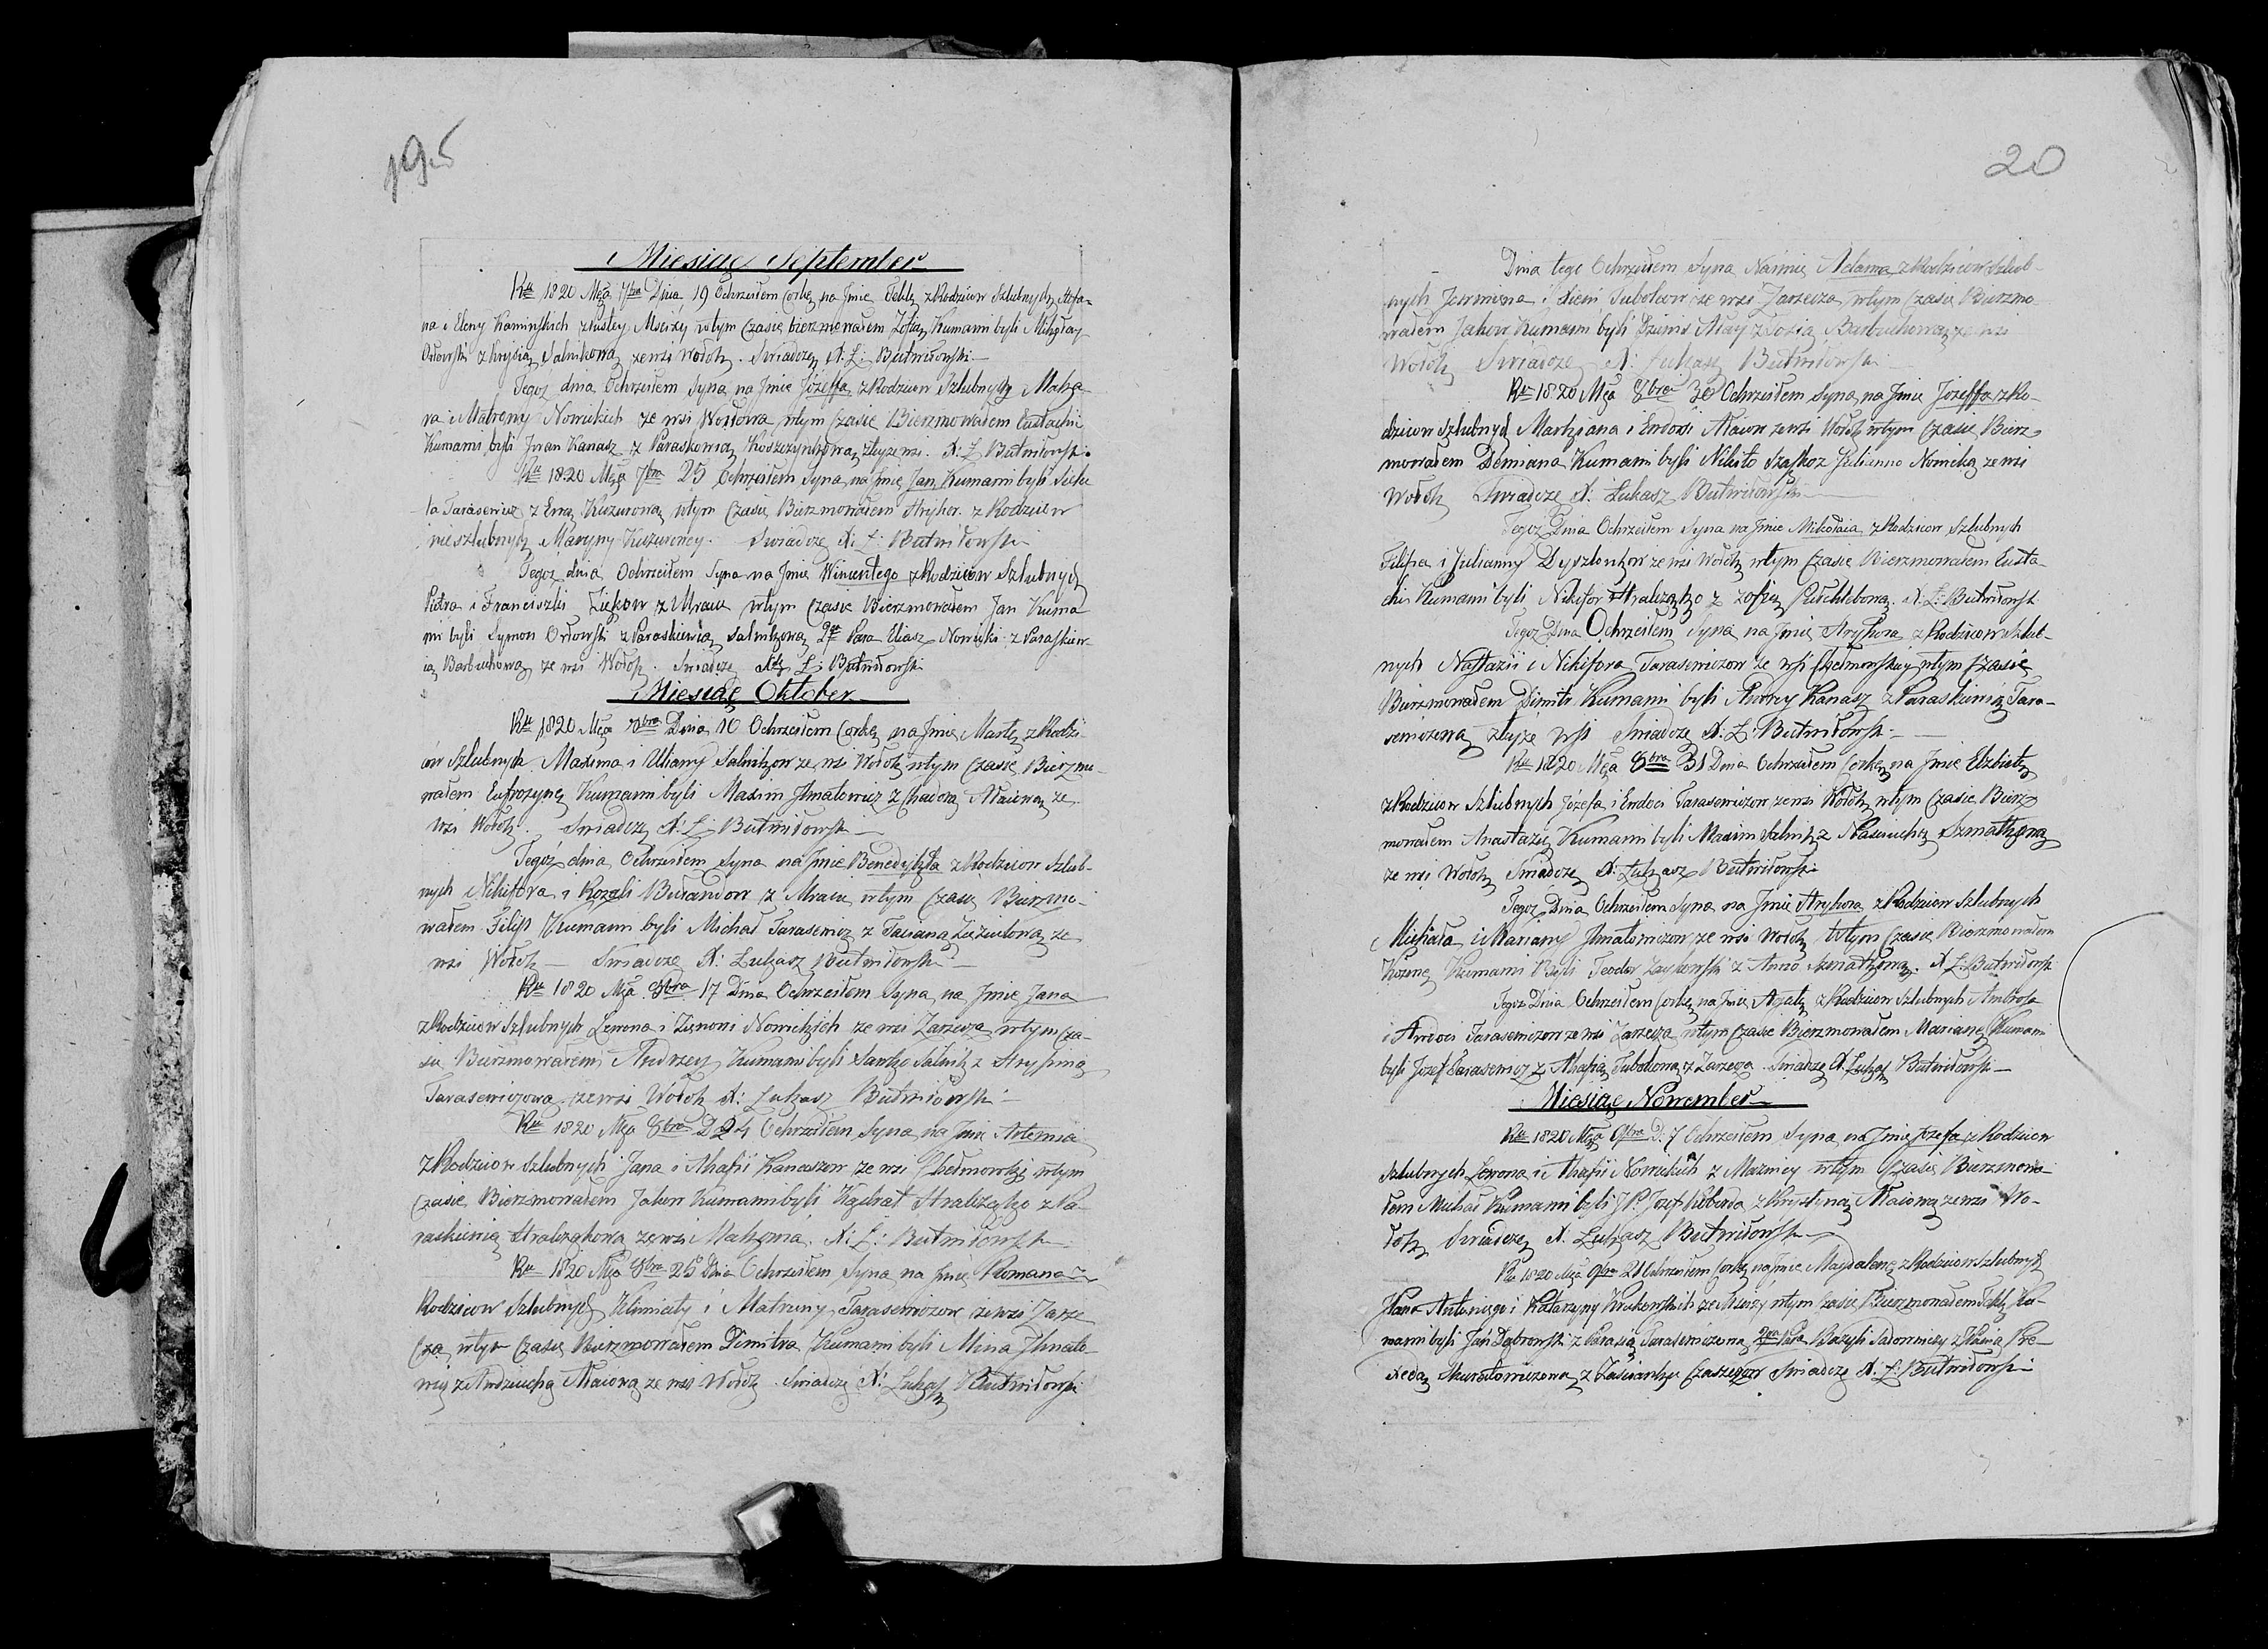 195
Miesiąc September
Ru 1820 Mca 7bra Dnia 19 Ochrzciłem Corkę na Jmie Teklę z Rodzicow Szlubnych Stefa-
na i Eleny Kaminskich z wtym Czasie bierzmowałem Zofią Kumami byli Mikołay
Orłowski z Krysią Salnikową ze wsi Wołok. Swiadczę X. Ł: Butwiłowski
Tegoż dnia Ochrzciłem Syna na Jmie Józeffa z Rodzicow Szlubnych Maka-
ra i Matreny Nowickich ze wsi wtym Czasie Bierzmowałem Eustachi
Kumami byli Jwan Kanasz z Paraskowią zteyże wsi. X: Ł Butwiłowski
Ru 1820 Mca 7bra 25 Ochrzciłem Syna na Jmie Jan Kumami byli
ta Tarasewicz z Ewą Kuzurową wtym Czasie Bierzmowałem Hryhor z Rodzicow
nieszlubnych Maryny Kuzurowey. Swiadczę X: Ł: Butwiłowski
Tegoż dnia Ochrzciłem Syna na Jmie Wincentego z Rodzicow Szlubnych
Piotra i Franciszki z Mraiu wtym Czasie Bierzmowałem Jan Kuma
mi byli Symon Orłowski z Paraskiewią Salnikową 2ga Para Eliasz Nowicki z Paraskiew-
ią Barbuchową ze wsi Wołok. Swiadczę X Ł: Butwiłowski
Miesiąc Oktober
Ru 1820 Mca 8bra Dnia 10 Ochrzciłem Corkę na Jmie Martę z Rodzi-
ców Szlubnych Maxima i Uliany Salnikow ze wsi Wołok wtym Czasie Bierzmo-
wałem Eufrozynę Kumami byli Maxim Jhnatowicz z Chwedorą Maiową ze
wsi Wołok. Swiadczę X: Ł: Butwiłowski
Tegoż dnia Ochrzciłem Syna na Jmie Benedykta z Rodzicow Szlub-
nych Nikifora i Rozali Burandow z Mraiu wtym Czasie Bierzmo-
wałem Filip Kumami byli Michał Tarasewicz z Tacianą ze
wsi Wołok Swiadczę X: Łukasz Butwiłowski
Ru 1820 Mca 8bra 17 Dnia Ochrzciłem Syna na Jmie Jana
z Rodzicow Szlubnych Lewona i Zienowi Nowickich ze wsi Zarzecza wtym Cza-
sie Bierzmowałem Andrzey Kumami byli Sawko Salnik z Hrypiną
Tarasewiczową ze wsi Wołok X: Łukasz Butwiłowski
Ru 1820 Mca 8bra D 24 Ochrzciłem Syna na Jmie Artemia
z Rodzicow Szlubnych Jana i Ahafii Kanaszow ze wsi wtym
Czasie Bierzmowałem Jakow Kumami byli Kandrat Hralczonko z Pa-
raskiewią Hralczakową ze wsi X: Ł: Butwiłowski
Ru 1820 Mca 8bra 25 Dnia Ochrzciłem Syna na Jmie Romana z
Rodzicow Szlubnych Klimiaty i Matruny Tarasewiczow ze wsi Zarze
cza wtym Czasie Bierzmowałem Dimitra Kumami byli Mina Jhnato-
wicz z Andziuchą Maiową ze wsi Wołok. Swiadczę X: Łukasz Butwiłowski
20
Dnia tego Ochrzciłem Syna Naimię Adama z Rodzicow Szlub-
nych i Xieni Tubolcow ze wsi Zarzecza wtym Czasie Bierzmo-
wałem Jakow Kumami byli Dzimi May z Zosią Barbuchową ze wsi
Wołok Swiadczę X: Łukasz Butwiłowski
Ru 1820 Mca 8bra 30 Ochrzciłem Syna na Jmie Jozeffa z Ro-
dzicow Szlubnych Martyiana i Ewdoxi Maiow ze wsi Wołok wtym Czasie Bierz-
mowałem Demiana Kumami byli Nikito z Julianno Nowicką ze wsi
Wołok Swiadczę X. Łukasz Butwiłowski
Tegoż Dnia Ochrzciłem Syna na Jmie Mikołaia z Rodzicow Szlubnych
Filipa i Julianny Dyszlonkow ze wsi Wołok wtym Czasie Bierzmowałem Eusta-
chi Kumami byli Nikifor Hralczonko z Zofią X. Ł: Butwiłowski
Tegoż Dnia Ochrzciłem Syna na Jmie Hryhora z Rodzicow Szlub-
nych Nastazii i Nikifora Tarasewiczow ze wsi wtym Czasie
Bierzmowałem Dimitr Kumami byli Andrey Kanasz z Paraskiewią Tara-
sewiczową zteyże wsi Swiadczę X. Ł: Butwiłowski
Ru 1820 Mca 8bra 31 Dnia Ochrzciłem Corkę na Jmie Elzbietę
z Rodzicow Szlubnych Jozefa i Ewdoci Tarasewiczow ze wsi Wołok wtym Czasie Bierz-
mowałem Anastazią Kumami byli Maxim Salnik z Nasciuchą Szmatkową
ze wsi Wołok Swiadczę X. Łukasz Butwiłowski
Tegoż Dnia Ochrzciłem Syna na Jmie Hryhora z Rodzicow Szlubnych
Michała i Mariany Jhnatowiczow ze wsi Wołok Wtym Czasie Bierzmowałem
Kozmę Kumami Byli Teodor z Anno Szmatkową. X Ł: Butwiłowski
Tegoż Dnia Ochrzciłem Corkę na Jmie Agatę z Rodzicow Szlubnych Ambroża
i Awdoci Tarasewiczow ze wsi Zarzecza wtym Czasie Bierzmowałem Marianę Kumami
byli Jozef Tarasewicz z Ahafią Tubolcową z Zarzecza Swiadczę X Łukasz Butwiłowski
Miesiąc Nowember
Ru 1820 Mca 9bra D. 7 Ochrzciłem Syna na Jmie Jozefa z Rodzicow
Szlubnych Lewona i Ahafii Nowickich z wtym Czasie Bierzmowa-
łem Michał Kumami byli JP. Jozef Koberda z Krystyną Maiową ze wsi Wo-
łok Swiadczę X. Łukasz Butwiłowski
Ru 1820 Mca 9bra 21 Ochrzciłem Corkę na Jmie Magdalenę z Rodzicow Szlubnych
Pana Antoniego i Katarzyny Krukowskich ze wtym Czasie Bierzmowałem Teklę Ku-
mami byli Jan Dąbrowski z Parasią Tarasewiczową 2ga Para Bazyli Sadowniczy z Panią
z Swiadczę X. Ł: Butwiłowski